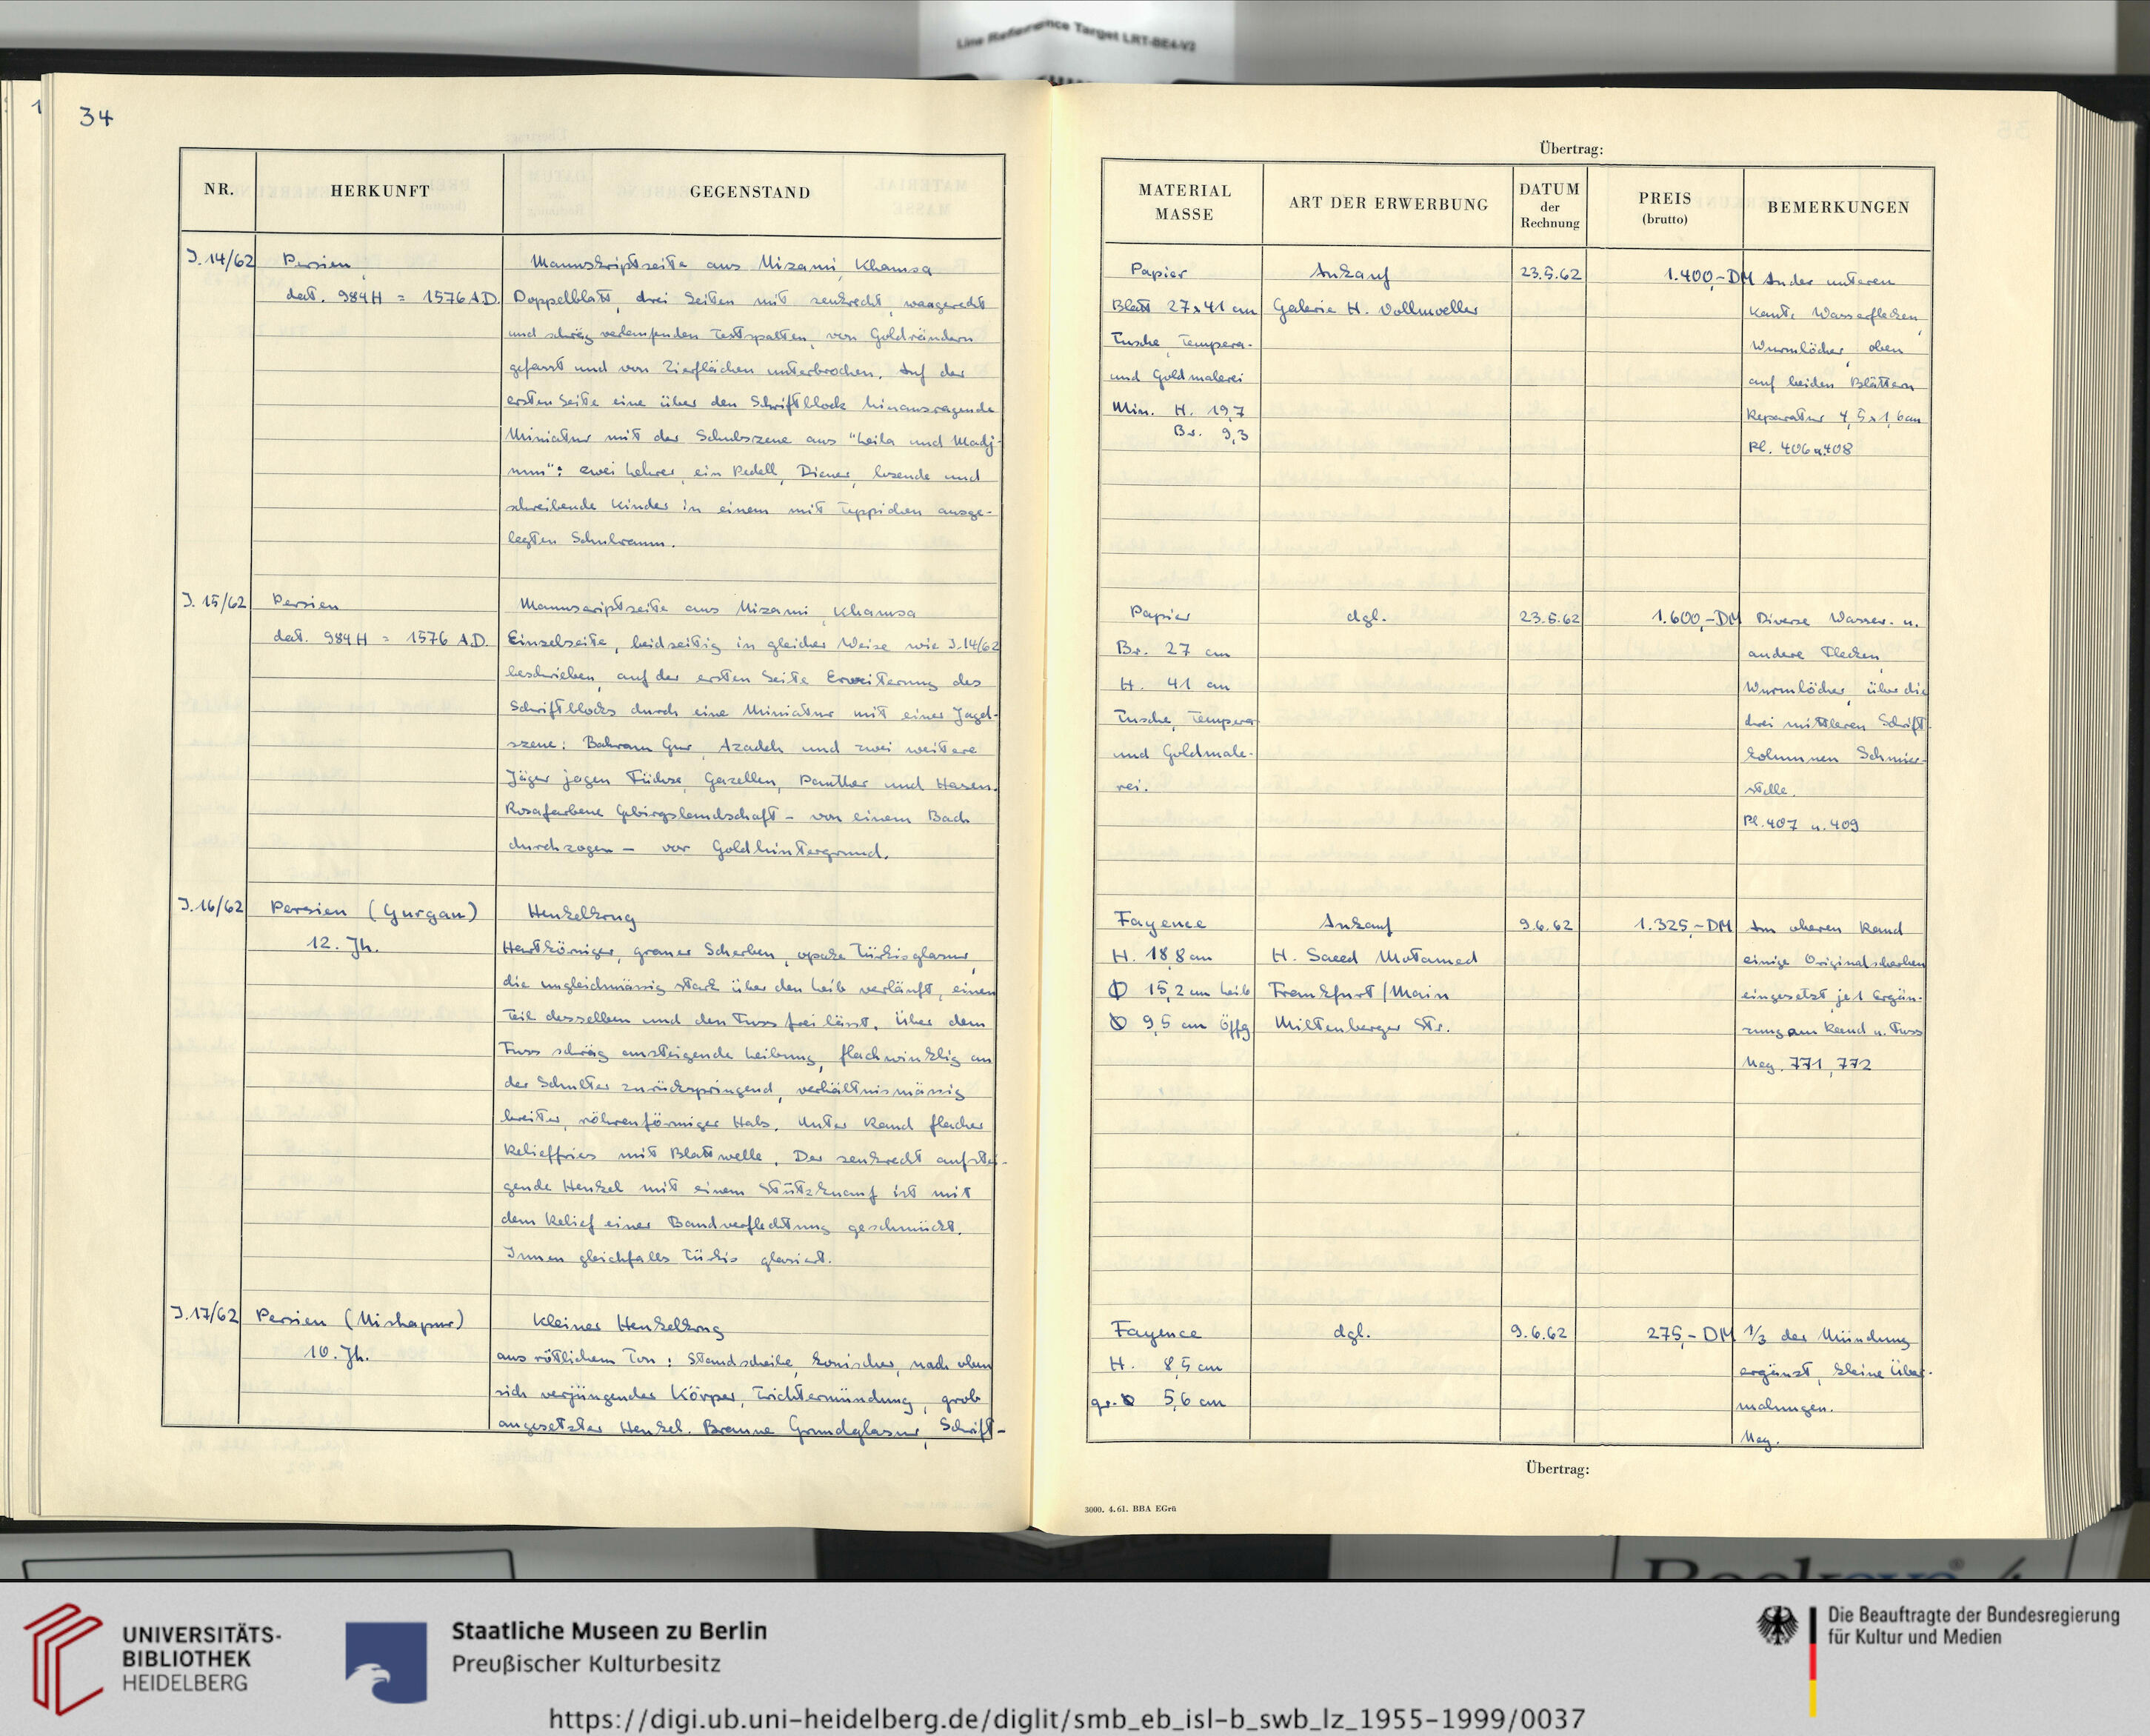 Line Reference Target LRT-BE4-V2
34
NR.
HERKUNFT
GEGENSTAND
J. 14/62
Persien,
dat. 984 H = 1576 A.D.
Manuskriptseite aus Nizami, Khamsa
Doppelblatt, drei Seiten mit senkrecht, waagerecht
und schräg verlaufenden Textspalten, von Goldrändern
gefasst und von Zierflächen unterbrochen. Auf der
ersten Seite eine über den Schriftblock hinausragende
Miniatur mit der Schulszene aus "Leila und Madj-
nun": zwei Lehrer, ein Pedell, Diener, lesende und
schreibende Kinder in einem mit Teppichen ausge-
legten Schulraum.
J. 15/62
Persien
dat. 984 H = 1576 A.D.
Manuscriptseite aus Nizami, Khamsa
Einzelseite, beidseitig in gleicher Weise wie J. 14/62
beschrieben, auf der ersten Seite Erweiterung des
Schriftblocks durch eine Miniatur mit einer Jagd-
szene: Bahram Gur, Azadeh und zwei weitere
Jäger jagen Füchse, Gazellen, Panther und Hasen.
Rosafarbene Gebirgslandschaft - von einem Bach
durchzogen - vor Goldhintergrund.
J. 16/62
Persien (Gurgan)
12. Jh.
Henkelkrug
Hartkörniger, grauer Scherben, opake Türkisglasur,
die ungleichmässig stark über den Leib verläuft, einen
Teil desselben und den Fuss frei lässt. Über dem
Fuss schräg ansteigende Leibung, flachwinklig an
der Schulter zurückspringend, verhältnismässig
breiter, röhrenförmiger Hals. Unter Rand flacher
Relieffries mit Blattwelle. Der senkrecht aufstei-
gende Henkel mit einem Stützknauf ist mit
dem Relief einer Bandverflechtung geschmückt.
Innen gleichfalls Türkis glasiert.
J. 17/62
Persien (Nishapur)
10. Jh.
Kleiner Henkelkrug
aus rötlichem Ton: Standscheibe, konischer, nach oben
sich verjüngender Körper, Trichtermündung, grob
angesetzter Henkel. Braune Grundglasur, Schrift-
Übertrag:
MATERIAL
MASSE
ART DER ERWERBUNG
DATUM
der
Rechnung
PREIS
(brutto)
BEMERKUNGEN
Papier
Blatt 27 x 41 cm
Tusche, Tempera-
und Goldmalerei
Min. H. 19,7
Br. 9,3
Ankauf
Galerie H. Vollmoeller
23.5.62
1.400,-DM
An der unteren
Kante Wasserflecken,
Wurmlöcher, oben
auf beiden Blättern
Reparatur 4,5 x 1,6 cm
Pl. 406 u. 408
Papier
Br. 27 cm
H. 41 cm
Tusche, Tempera
und Goldmale-
rei.
dgl.
23.5.62
1.600,-DM
Diverse Wasser- u.
andere Flecken,
Wurmlöcher, über die
drei mittleren Schrift-
kolumnen Schmier-
stelle.
Pl. 407 u. 409
Fayence
H. 18,8 cm
Ø 15,2 cm Leib
Ø 9,5 cm Öffg
Ankauf
H. Saeed Motamed
Frankfurt/Main
Miltenberger Str.
9.6.62
1.325,-DM
Am oberen Rand
einige Originalscherben
eingesetzt, je 1 Ergän-
zung am Rand u. Fuss
Neg. 771, 772
Fayence
H. 8,5 cm
gr. Ø 5,6 cm
dgl.
9.6.62
275,- DM
1/3 der Mündung
ergänzt, kleine Über-
malungen.
Neg.
Übertrag:
3000. 4.61. BBA EGrü
UNIVERSITÄTS-
BIBLIOTHEK
HEIDELBERG
Staatliche Museen zu Berlin
Preußischer Kulturbesitz
Die Beauftragte der Bundesregierung
für Kultur und Medien
https://digi.ub.uni-heidelberg.de/diglit/smb_eb_isl-b_swb_lz_1955-1999/0037